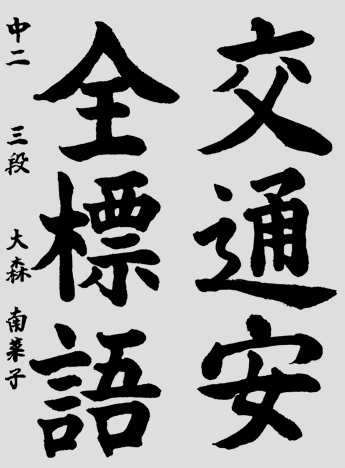 交通安
全標語
中二 三段 大森 南菜子